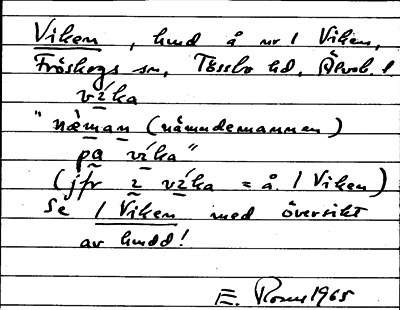 Viken, hmd å nr 1 Viken,
Fröskogs sn, Tössbo hd, Älvsb. l
víka
"næman (nämndemannen)
pa víka"
(jfr i víka = å. 1 Viken)
Se 1 Viken med översikt
av hmdd!
E. 1965